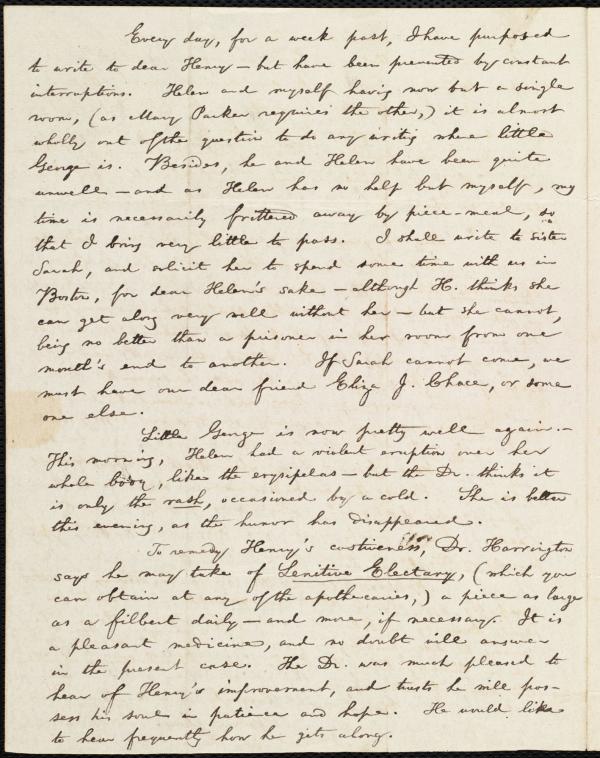 Every day, for a week past, I have purposed
to write to dear Henry – but have been prevented by constant
interruptions. Helen and myself having now but a single
room, (as Mary Parker requires the other,) it is almost
wholly out of the question to do any writing where little
George is. Besides, he and Helen have been quite
unwell – and as Helen has no help but myself, my
time is necessarily frittered away by piece-meal, so
that I bring very little to pass. I shall write to sister
Sarah, and solicit her to spend some time with us in
Boston, for dear Helen's sake – although H. thinks she
can get along very well without her – but she cannot,
being no better than a prisoner in her room from one
month's end to another. If Sarah cannot come, we
must have our dear friend Eliza J. Chace, or some
one else.
Little George is now pretty well again. –
This morning, Helen had a violent eruption over her
whole body, like the erysipelas – but the Dr. thinks it
is only the rash, occasioned by a cold. She is better
this evening, as the humor has disappeared.
To remedy Henry's costiveness, Dr. Harrington
says he may take of Lenitive Electary, (which you
can obtain at any of the apothecaries,) a piece as large
as a filbert daily – and more, if necessary. It is
a pleasant medicine, and no doubt will answer
in the present case. The Dr. was much pleased to
hear of Henry's improvement, and trusts he will pos-
sess his soul in patience and hope. He would like
to hear frequently how he gets along.